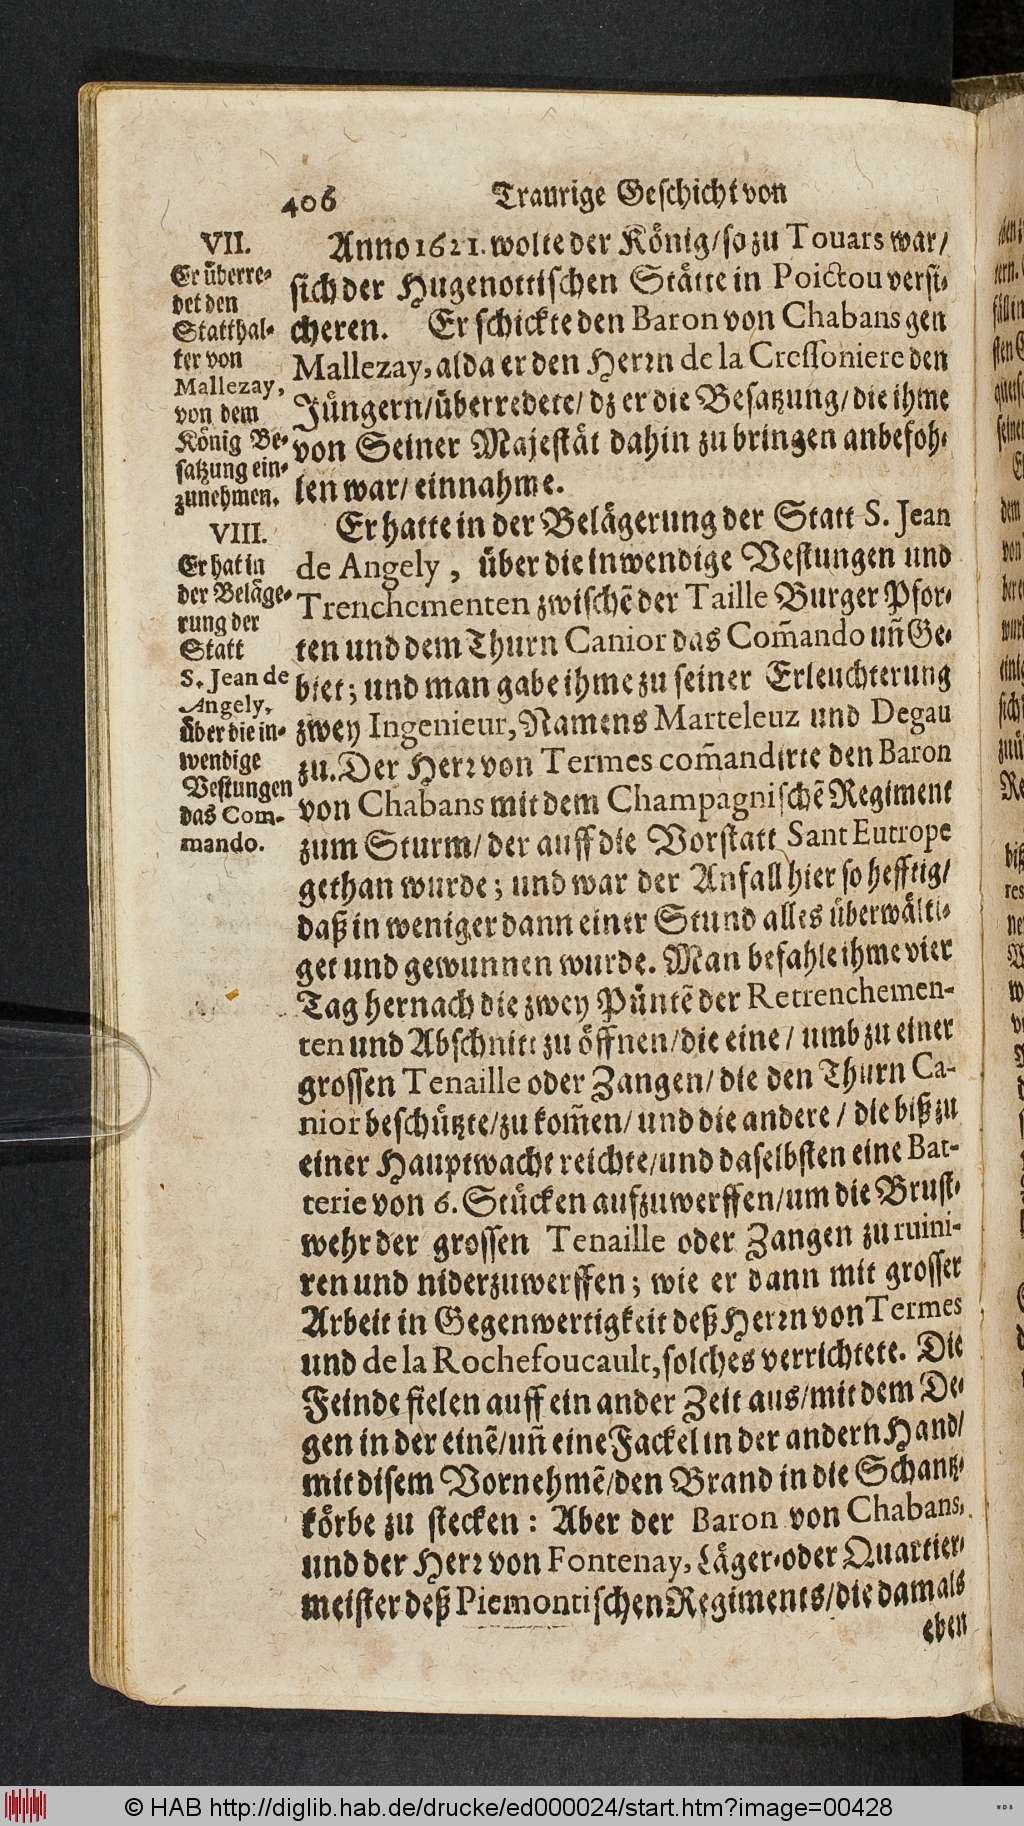 406 Traurige Geschicht von
VII.
Er überre-
det den
Statthal-
ter von
Mallezay,
von dem
König Be-
satzung ein-
zunehmen.
VIII.
Er hat in
der Beläge-
rung der
Statt
S. Jean de
Angely,
über die in-
wendige
Vestungen
das Com-
mando.
Anno 1621. wolte der König/ so zu Touars war/
sich der Hugenottischen Stätte in Poictou versi-
cheren. Er schickte den Baron von Chabans gen
Mallezay, alda er den Herrn de la Cressoniere den
Jüngern/ überredete/ dz er die Besatzung/ die ihme
von Seiner Majestät dahin zu bringen anbefoh-
len war/ einnahme.
Er hatte in der Belägerung der Statt S. Jean
de Angely, über die inwendige Vestungen und
Trenchementen zwischẽ der Taille Burger Pfor-
ten und dem Thurn Canior das Com̃ando uñ Ge-
biet; und man gabe ihme zu seiner Erleuchterung
zwey Ingenieur, Namens Marteleuz und Degau
zu. Der Herr von Termes com̃andirte den Baron
von Chabans mit dem Champagnischẽ Regiment
zum Sturm/ der auff die Vorstatt Sant Eutrope
gethan wurde; und war der Anfall hier so hefftig/
daß in weniger dann einer Stund alles überwälti-
get und gewunnen wurde. Man befahle ihme vier
Tag hernach die zwey Püntẽ der Retrenchemen-
ten und Abschnitt zu öffnen/ die eine/ umb zu einer
grossen Tenaille oder Zangen/ die den Thurn Ca-
nior beschützte/ zu kom̃en/ und die andere/ die biß zu
einer Hauptwacht reichte/ und daselbsten eine Bat-
terie von 6. Stücken aufzuwerffen/ um die Brust-
wehr der grossen Tenaille oder Zangen zu ruini-
ren und niderzuwerffen; wie er dann mit grosser
Arbeit in Gegenwertigkeit deß Herrn von Termes
und de la Rochefoucault, solches verrichtete. Die
Feinde fielen auff ein ander Zeit aus/ mit dem De-
gen in der einẽ/ uñ eine Fackel in der andern Hand/
mit disem Vornehmẽ/ den Brand in die Schantz-
körbe zu stecken: Aber der Baron von Chabans,
und der Herr von Fontenay, Läger- oder Quartier-
meister deß Piemontischen Regiments/ die damals
eben
© HAB http://diglib.hab.de/drucke/ed000024/start.htm?image=00428